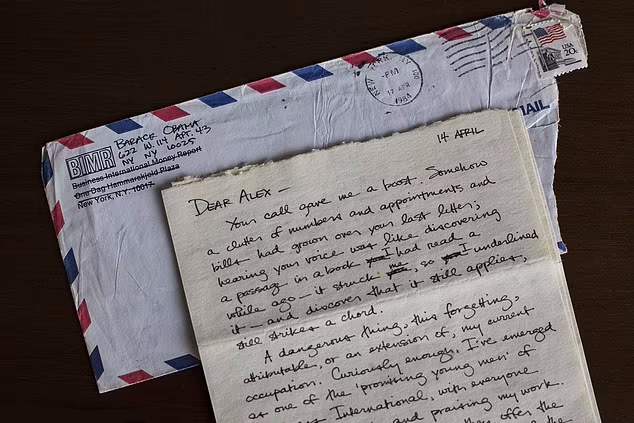 BARACK OBAMA
622 W. 114 APT. 43
NY NY 10025
BIMR
Business International Money Report
One Dag Hammarskjold Plaza
New York, N.Y. 10017
NEW YORK, NY 100
-PM
17 APR
1984
USA
20c
MAIL
14 APRIL
DEAR ALEX —
Your call gave me a boost. Somehow
a clutter of numbers and appointments and
bills had grown over your last letter;
hearing your voice was like discovering
a passage in a book I had read a
while ago — it struck me, so I underlined
it — and discover that it still applies,
still strikes a chord.
A dangerous thing, this forgetting,
attributable, or an extension of, my current
occupation. Curiously enough, I've emerged
as one of the "promising young men" of
International, with everyone
and praising my work.
they offer the
the